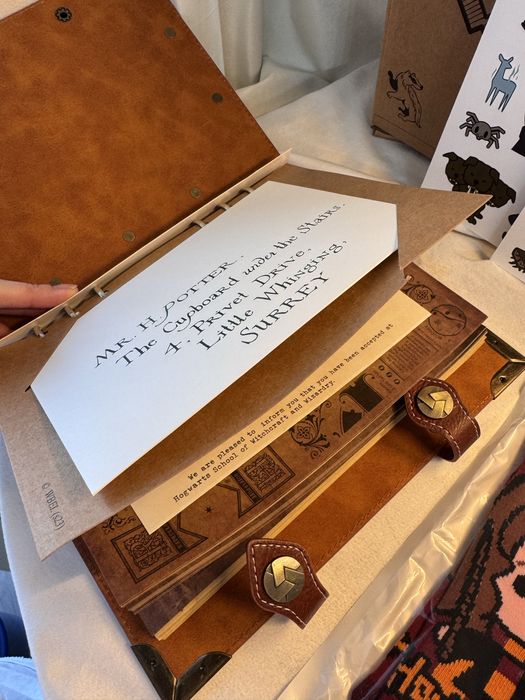 MR. H. POTTER,
The Cupboard under the Stairs,
4, Privet Drive,
Little Whinging,
SURREY
We are pleased to inform you that you have been accepted at
Hogwarts School of Witchcraft and Wizardry.
© WBEI. (s23)